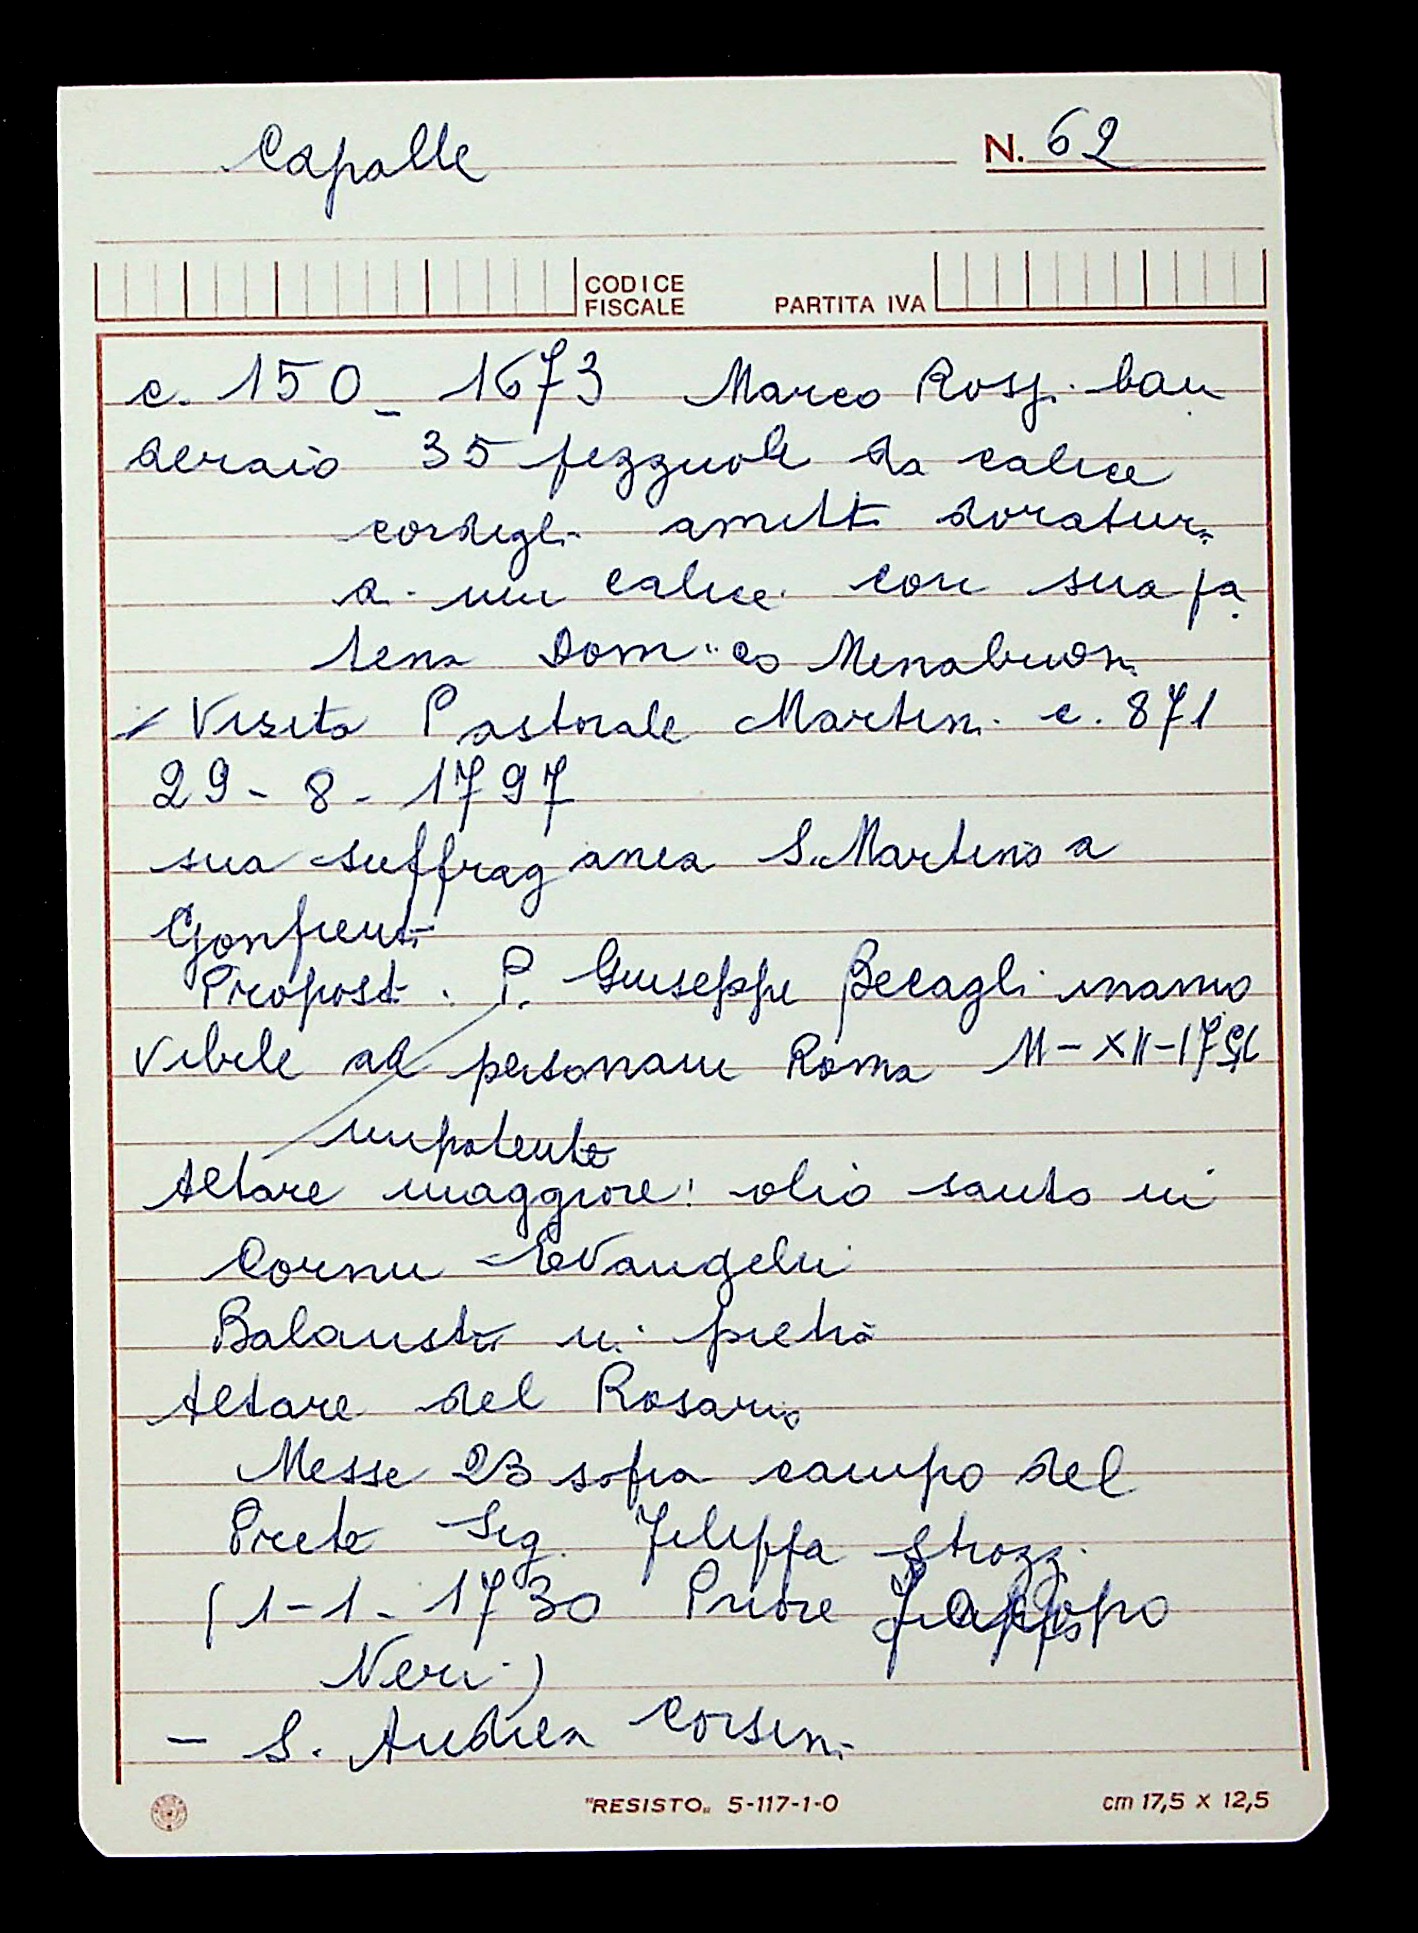 Capalle
N. 62
CODICE
FISCALE
PARTITA IVA
c. 150 - 1673 Marco Rosj. ban
deraio 35 pezzuole da calice
cordigli amitti doratur.
a. un calice con sua pa
tena Dom"co Menabuoni
Visita Pastorale Martini c. 871
29 - 8 - 1797
sua suffraganea S. Martino a
Gonfienti
Proposto. P. Giuseppe Becagli inamo
vibile ad personam Roma 11 - XII - 1791
impotente
Altare maggiore: olio santo in
Cornu Evangelii
Balaustri in pietra
Altare del Rosario
Messe 23 sopra campo del
Prete Sig. Filippa Strozzi
(1-1-1730 Priore Jacopo
Neri)
- S. Andrea Corsini
"RESISTO„ 5-117-1-0
cm 17,5 x 12,5